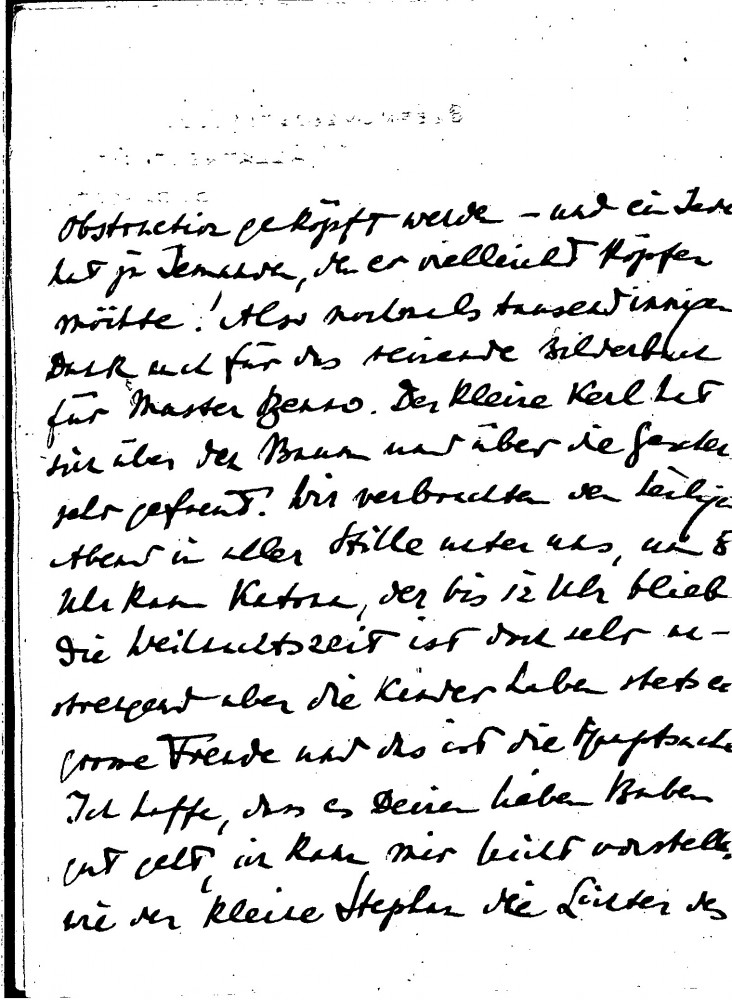 Obstruction geköpft werde – und ein Jede
hat ja Jemanden, den er vielleicht köpfen
möchte! Also nochmals tausend innigen
Dank auch für das reizende Bilderbuch
für Master Benno. Der kleine Kerl hat
sich über den Baum und über die
sehr gefreut. Wir verbrachten den heilige
Abend in aller Stille unter uns, um 8
Uhr kam Katona, der bis 12 Uhr blieb
Die Weihnachtszeit ist doch sehr an-
strengend aber die Kinder haben stets e
grosse Freude und das ist die Hauptsache
Ich hoffe, dass es Deinen lieben Buben
gut geht, ich kann mir leicht vorstelle
wie der kleine Stephan die Lichter des